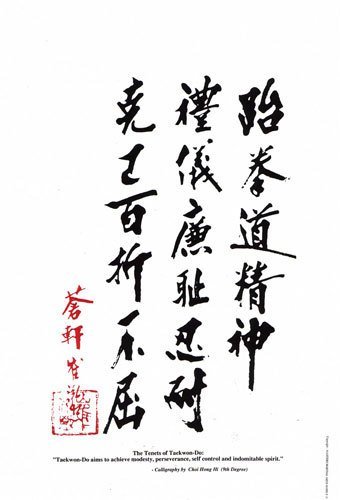 跆拳道精神
禮儀廉耻忍耐
克己百折不屈
蒼軒 崔泓熙
The Tenets of Taekwon-Do:
"Taekwon-Do aims to achieve modesty, perseverance, self control and indomitable spirit."
- Calligraphy by Choi Hong Hi (9th Degree)